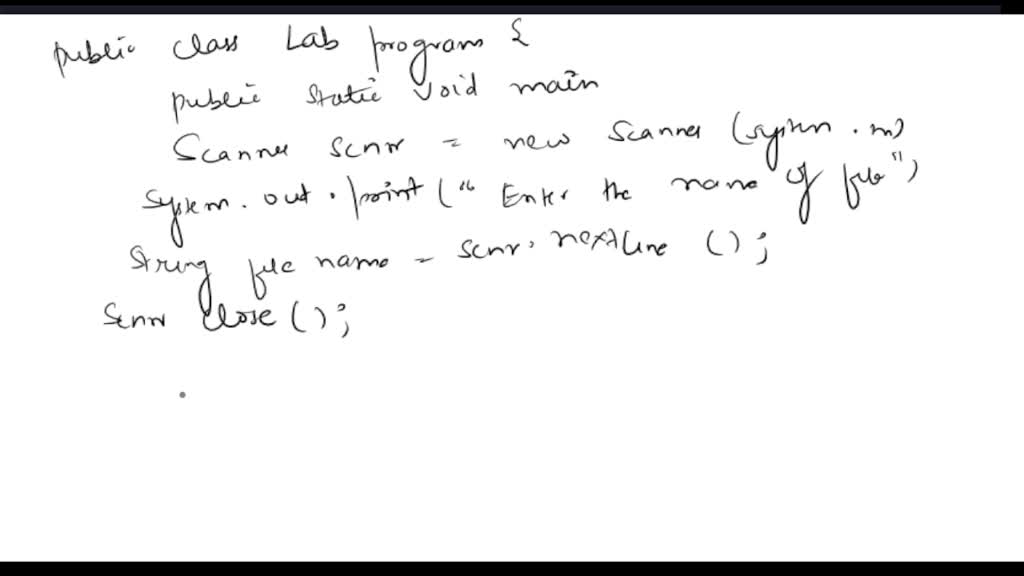 public class Lab program {
public static void main
Scanner scnr = new Scanner (system.in)
System.out.print (" Enter the name of file")
String file name = scnr.nextline ();
Scnr close();